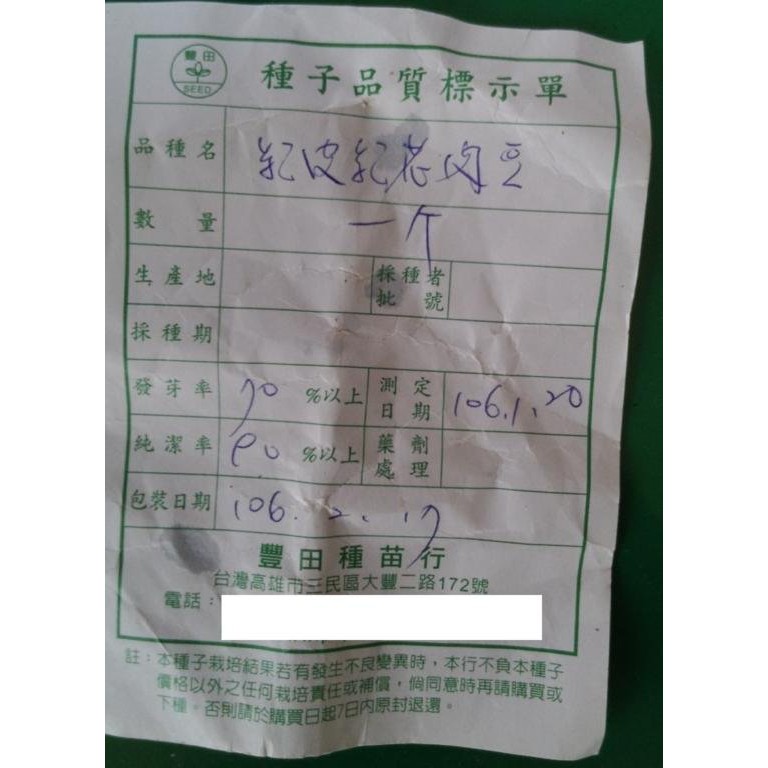 豐田
SEED
種子品質標示單
品種名 紅皮紅花肉豆
數量 一斤
生產地 採種者批號
採種期
發芽率 70 %以上 測定日期 106.1.20
純潔率 90 %以上 藥劑處理
包裝日期 106.2.17
豐田種苗行
台灣高雄市三民區大豐二路172號
電話：
註：本種子栽培結果若有發生不良變異時，本行不負本種子
價格以外之任何栽培責任或補償，倘同意時再請購買或
下種。否則請於購買日起7日內原封退還。